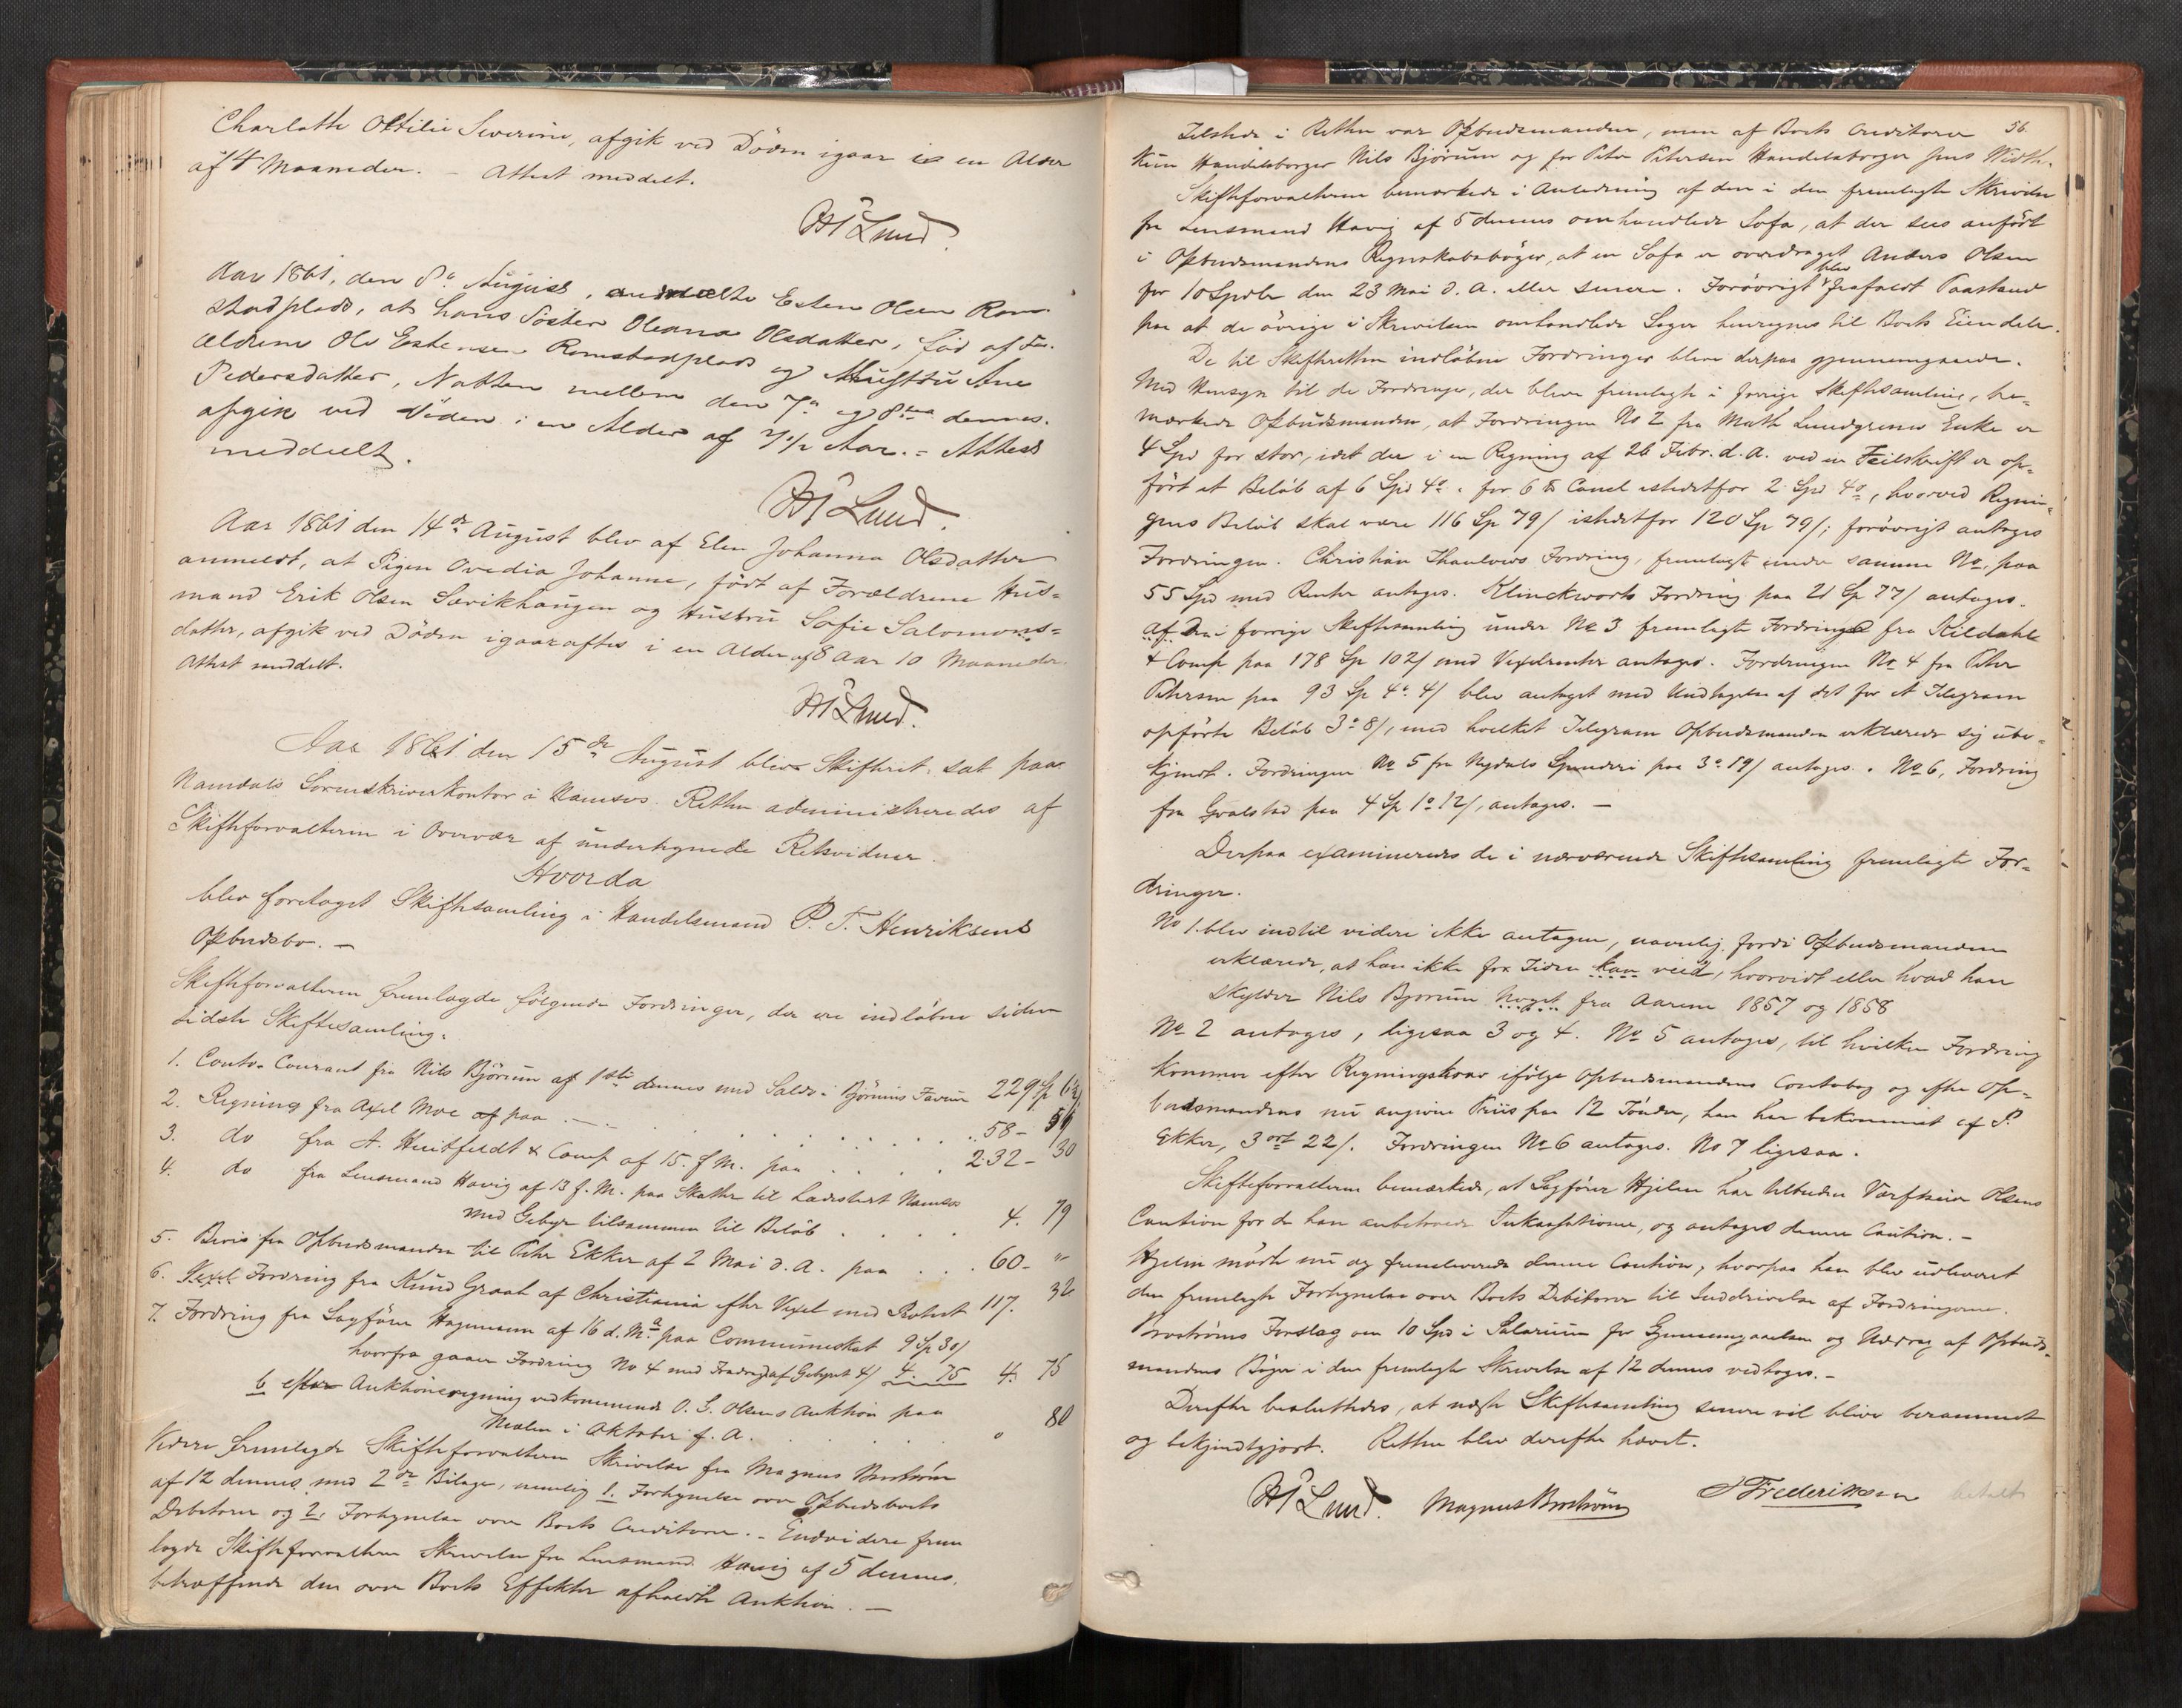 Charlotte Ottilie Severine, afgik ved Döden igaar i en Alder
af 4 Maaneder. – Attest meddelt.
Lund.
Aar 1861, den 8de August, anmeldte Esten Olsen Rom-
stadplads, at hans Söster Oleana Olsdatter, föd af For-
ældrene Ole Estensen Romstadplads og Hustru Ane
Pedersdatter, Natten mellem den 7de og 8de dennes.
afgik ved Döden i en Alder af 7½ Aar. – Attest
meddeelt.
Lund.
Aar 1861 den 14de August blev af Elen Johanna Olsdatter
anmeldt, at Pigen Ovedia Johanne, födt af Forældrene Hus-
mand Erik Olsen Særikhaugen og Hustru Sofie Salomons-
datter, afgik ved Döden igaaraftes i en Alder af 8 Aar 10 Maaneder.
Attest meddelt.
Lund.
Aar 1861 den 15de August blev Skifteret sat paa
Namdals Sorenskriverkontor i Namsos. Retten administreredes af
Skifteforvalteren i Overvær af undertegnede Retsvidner.
Hvorda
blev foretaget Skiftesamling i Handelsmand P. T. Henriksens
Opbudsbo. –
Skifteforvalteren fremlagde fölgende Fordringer, der ere indlöbne siden
sidste Skiftesamling.
1. Conto Courant fra Nils Bjørum af 1ste dennes med Saldo i Bjørums Faveur 229 Sp 62/
2. Regning fra Axel Moe af paa . – . . . . . . 58 – 54
3. do fra A. Huitfeldt & Comp af 15. f. M. paa . . . . 232 – 30
4. do fra Lensmand Havig af 13 f. M. paa Skatter til Ladestedet Namsos
med Gebyr tilsammen til Beløb . . . . 4. 79
5. Bevis fra Opbudsmanden til Peter Ekker af 2 Mai d. A. paa . . . 60 – "
6. Vexel Fordring fra Knud Graah af Christiania efter Vexel med Protest 117. 36
7. Fordring fra Sagförer Hagemann af 16 d. M. a paa Communeskat 9 Sp 30/
hvorfra gaaer Fordring No 4 med Fradrag af Gebyret 4/ 4. 75 4. 75
b efter Auktionsregning vedkommende O. S. Olsens Auktion paa
Mælen i Oktober f. A. . . . . . " 80
Videre fremlagde Skifteforvalteren Skrivelse fra Magnus Broström
af 12 dennes med 2de Bilage, nemlig 1. Fortegnelse over Opbudsboets
Debitorer og 2. Fortegnelse over Boets Creditorer. – Endvidere frem
lagde Skifteforvalteren Skrivelse fra Lensmand Havig af 5 dennes,
betræffende den over Boets Effekter afholdte Auktion. –
56.
Tilstede i Retten var Opbudsmanden, men af Boets Creditorer
kun Handelsborger Nils Bjørum og for Peter Petersen Handelsborger Jens Wid
Skifteforvalteren bemærkede i Anledning af den i den fremlagte Skrivelse
fra Lensmand Havig af 5 dennes omhandlede Sofa, at der sees anfört
i Opbudsmandens Regnskabsböger, at en Sofa er overdraget Anders Olsen
for 10 Spdlr den 23 Mai d. A. eller senere. Forövrigt blev frafaldt Paastand
paa at de övrige i Skrivelsen omhandlede Sager henregnes til Boets Eiendele.
De til Skifteretten indlöbne Fordringer bleve derpaa gjennemgaaede.
Med Hensyn til de Fordringer, der bleve fremlagte i forrige Skiftesamling, be-
mærkede Opbudsmanden, at Fordringen No 2 fra Math. Lundgreens Enke er
4 Spd for stor, idet der i en Regning af 26 Febr. d. A. ved en Feilskrift er op-
fört et Beløb af 6 Spd 4 o. for 6 ℔ Canel istedetfor 2 Spd 4 o, hvorved Regnin-
gens Beløb skal være 116 Sp 79/ istedetfor 120 Sp 79/; forövrigt antages
Fordringen. Christian Thaulows Fordring, fremlagt under samme No, paa
55 Spd med Renter antages. Klinckworts Fordring paa 21 Sp 77/ antages.
af Den i forrige Skiftesamling under No 3 fremlagte Fordring fra Kildahl
& Comp paa 178 Sp 102/ med Vexelrenter antages. Fordringen No 4 fra Peter
Petersen paa 93 Sp 4 o. 4/ blev antaget med Undtagelse af det for et Telegram
opförte Beløb 3 o 8/, med hvilket Telegram Opbudsmanden erklærede sig ube-
kjendt. Fordringen No 5 fra Nydals Spinderi paa 3 o 19/ antages. No 6, Fordring
fra Gvalstad paa 4 Sp 1 o 12/, antages. –
Derpaa examineredes de i nærværende Skiftesamling fremlagte For-
dringer.
No 1. blev indtil videre ikke antagen, navnlig fordi Opbudsmanden
erklærede, at han ikke for Tiden kan veed, hvorvidt eller hvad han
skylder Nils Bjørum noget fra Aarene 1857 og 1858
No 2 antages, ligesaa 3 og 4. No 5 antages, til hvilken Fordring
kommer efter Regningskrav ifølge Opbudsmandens Contobog og efter Op-
budsmandens nu angivne Priis paa 12 Tönder, han har bekommet af P.
Ekker, 3 ort 22/. Fordringen No 6 antages. No 7 ligesaa.
Skifteforvalteren bemærkede, at Sagförer Hjelm har tilbudt Værftseier Olsens
Caution for de ham anbetroede Inkassationer, og antages denne Caution. –
Hjelm mödte nu og fremleverede denne Caution, hvorpaa han blev udleveret
den fremlagte Fortegnelse over Boets Debitorer til Inddrivelse af Fordringerne.
Broströms Forslag om 10 Spd i Salarium for Gjennemgaaelsen og Uddrag af Opbuds-
mandens Böger i den fremlagte Skrivelse af 12 dennes vedtoges. –
Derefter besluttedes, at næste Skiftesamling senere vil blive berammet
og bekjendtgjort. Retten blev derefter hævet.
Lund. Magnus Broström J Frederiksen betalt